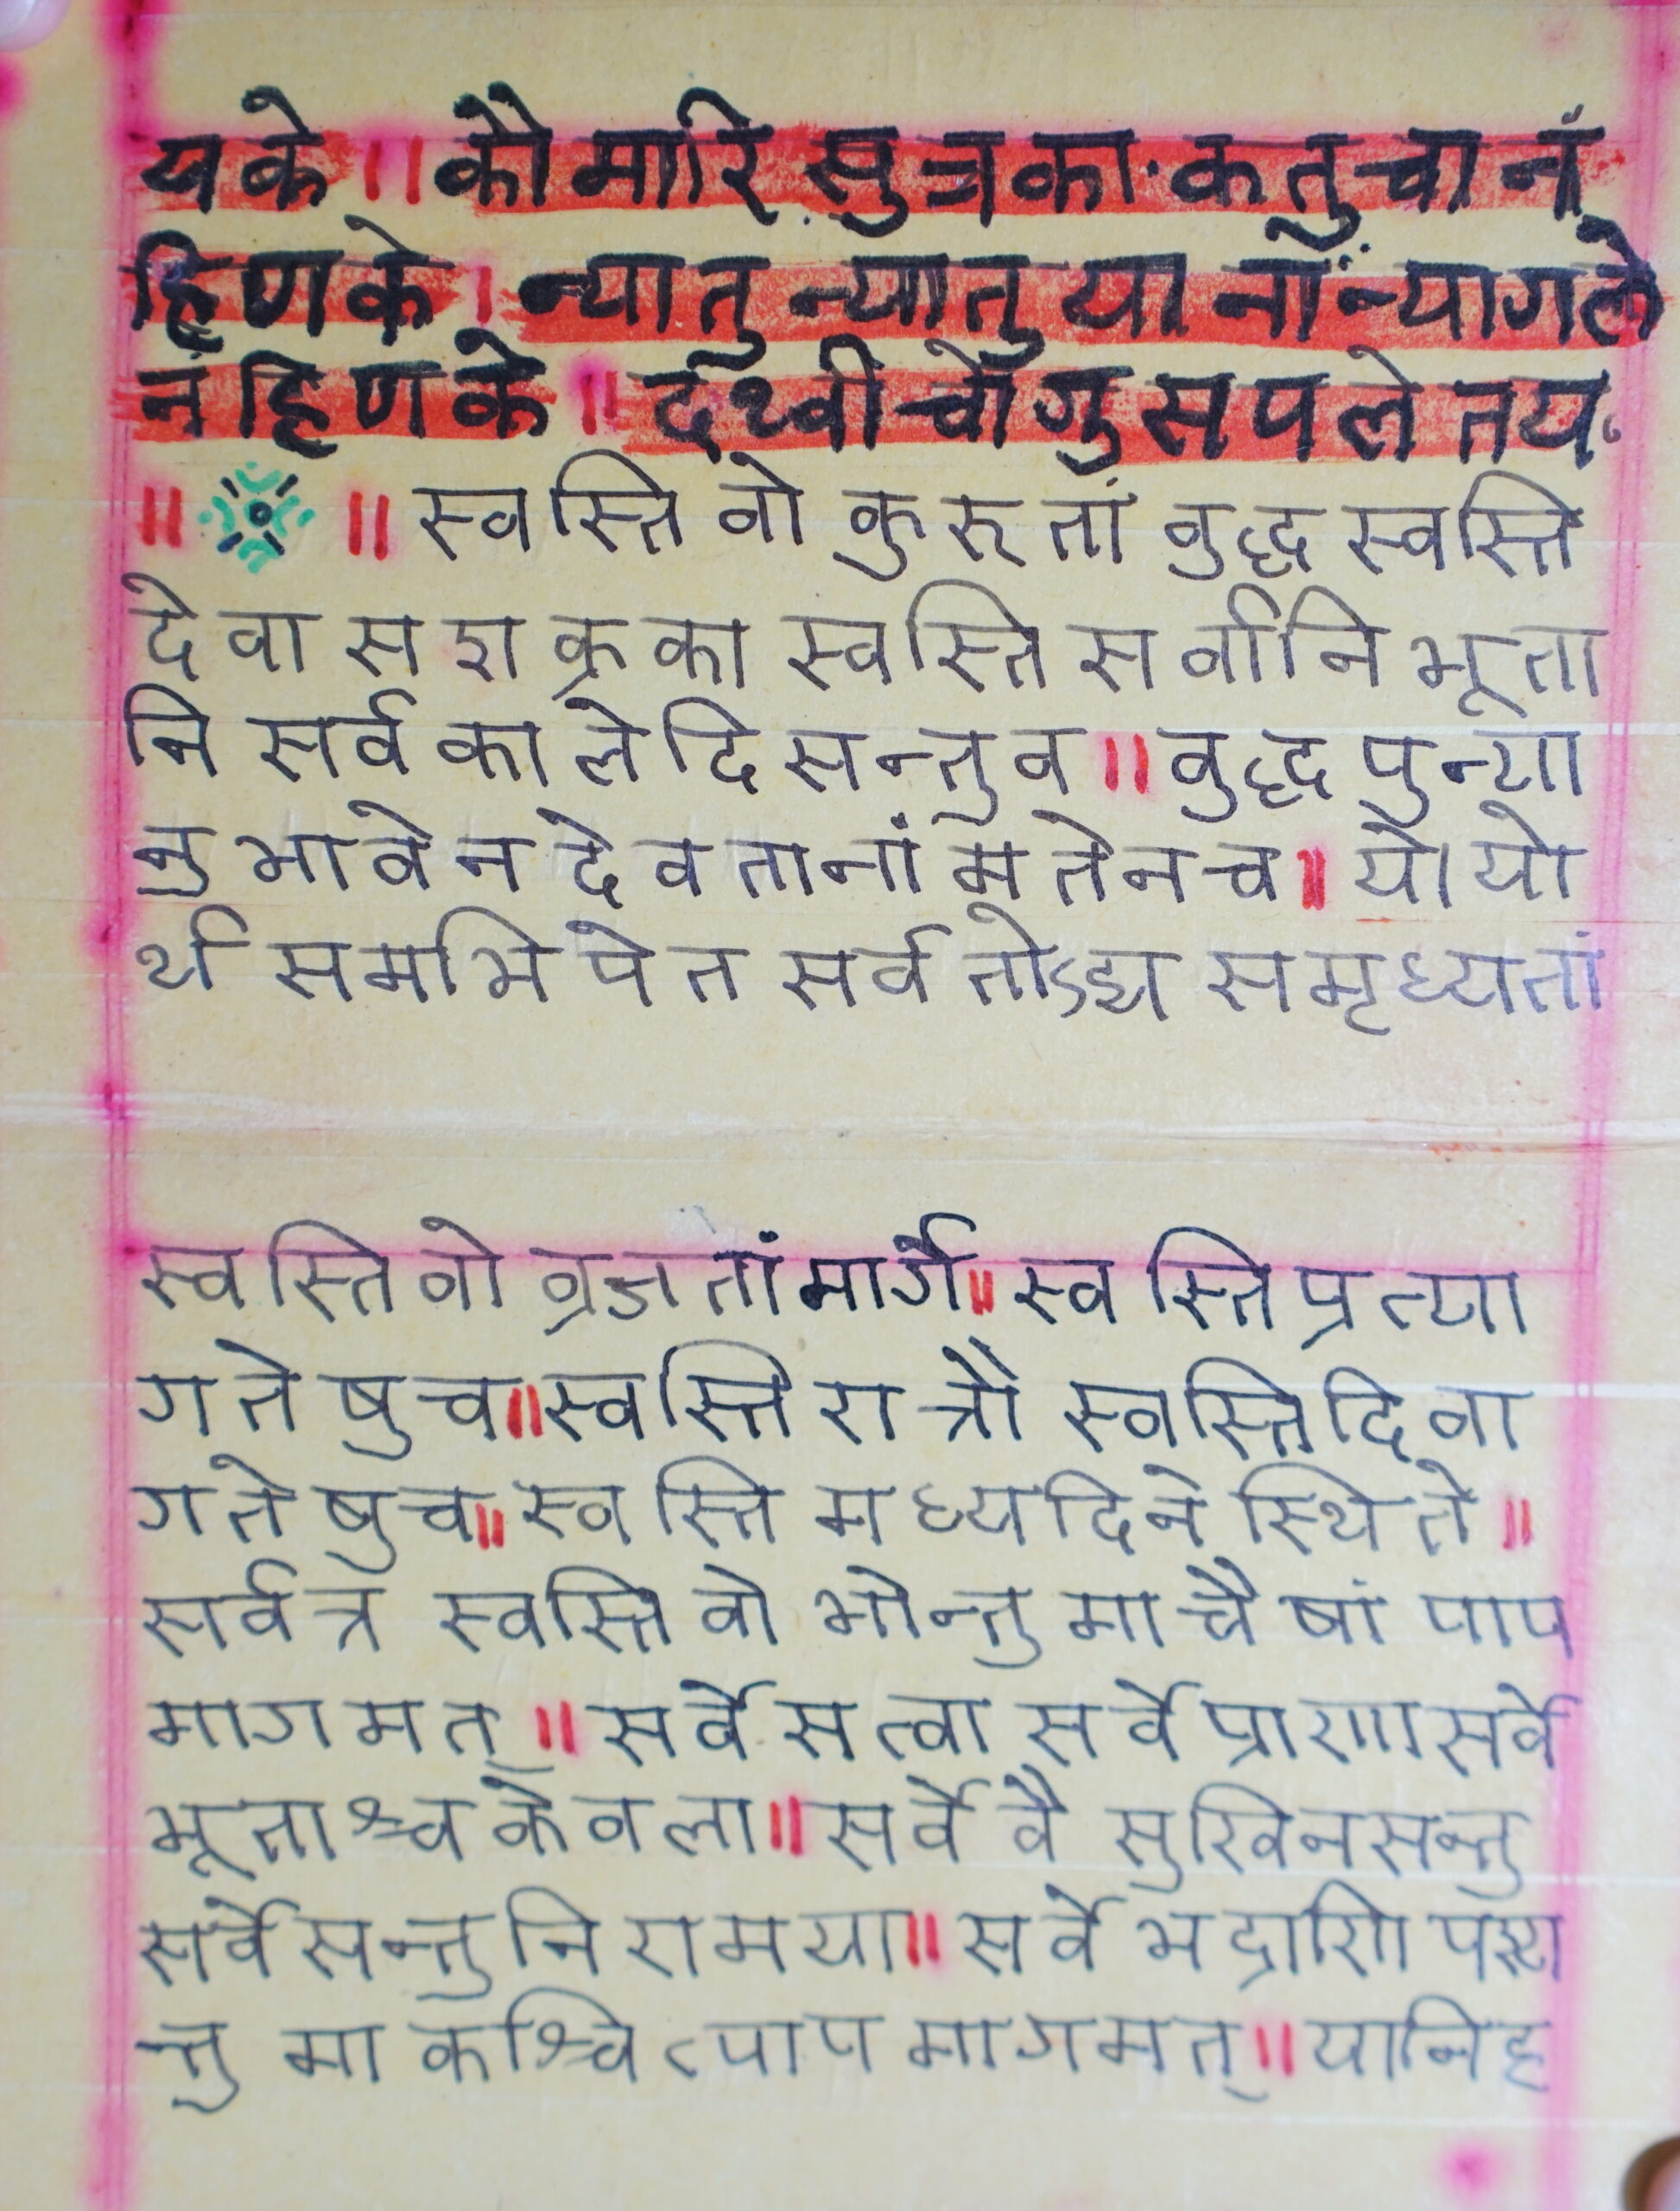 यके ॥ कौमारि सुत्रका· कतुचा नं
हिणके । न्यातु न्यातु या नां न्यागले
नं हिणके ॥ दथ्वी चोंगु सपले तय
॥ ॥ स्वस्ति वो कुरुतां वुद्ध स्वस्ति
देवा सशक्रका स्वस्ति सर्वानि भूता
नि सर्व काले दिसन्तुव ॥ वुद्ध पुन्या
नु भावेन देवतानां मतेनच ॥ यो यो
र्थ समभिपेत सर्व तोऽद्य समृध्यतां
स्वस्ति वो व्रजतां मार्गे ॥ स्वस्ति प्रत्या
गतेषुच ॥ स्वस्ति रात्रौ स्वस्ति दिवा
गतेषुच ॥ स्वस्ति मध्यदिने स्थिते ॥
सर्वत्र स्वस्ति वो भोन्तु माचैषां पाप
मागमत् ॥ सर्वे सत्वा सर्वे प्राणा सर्वे
भूताश्च केवला ॥ सर्वे वै सुखिन सन्तु
सर्वे सन्तु निरामया ॥ सर्वे भद्राणि पश्य
न्तु मा कश्चित्पाप मागमत् ॥ यानिह